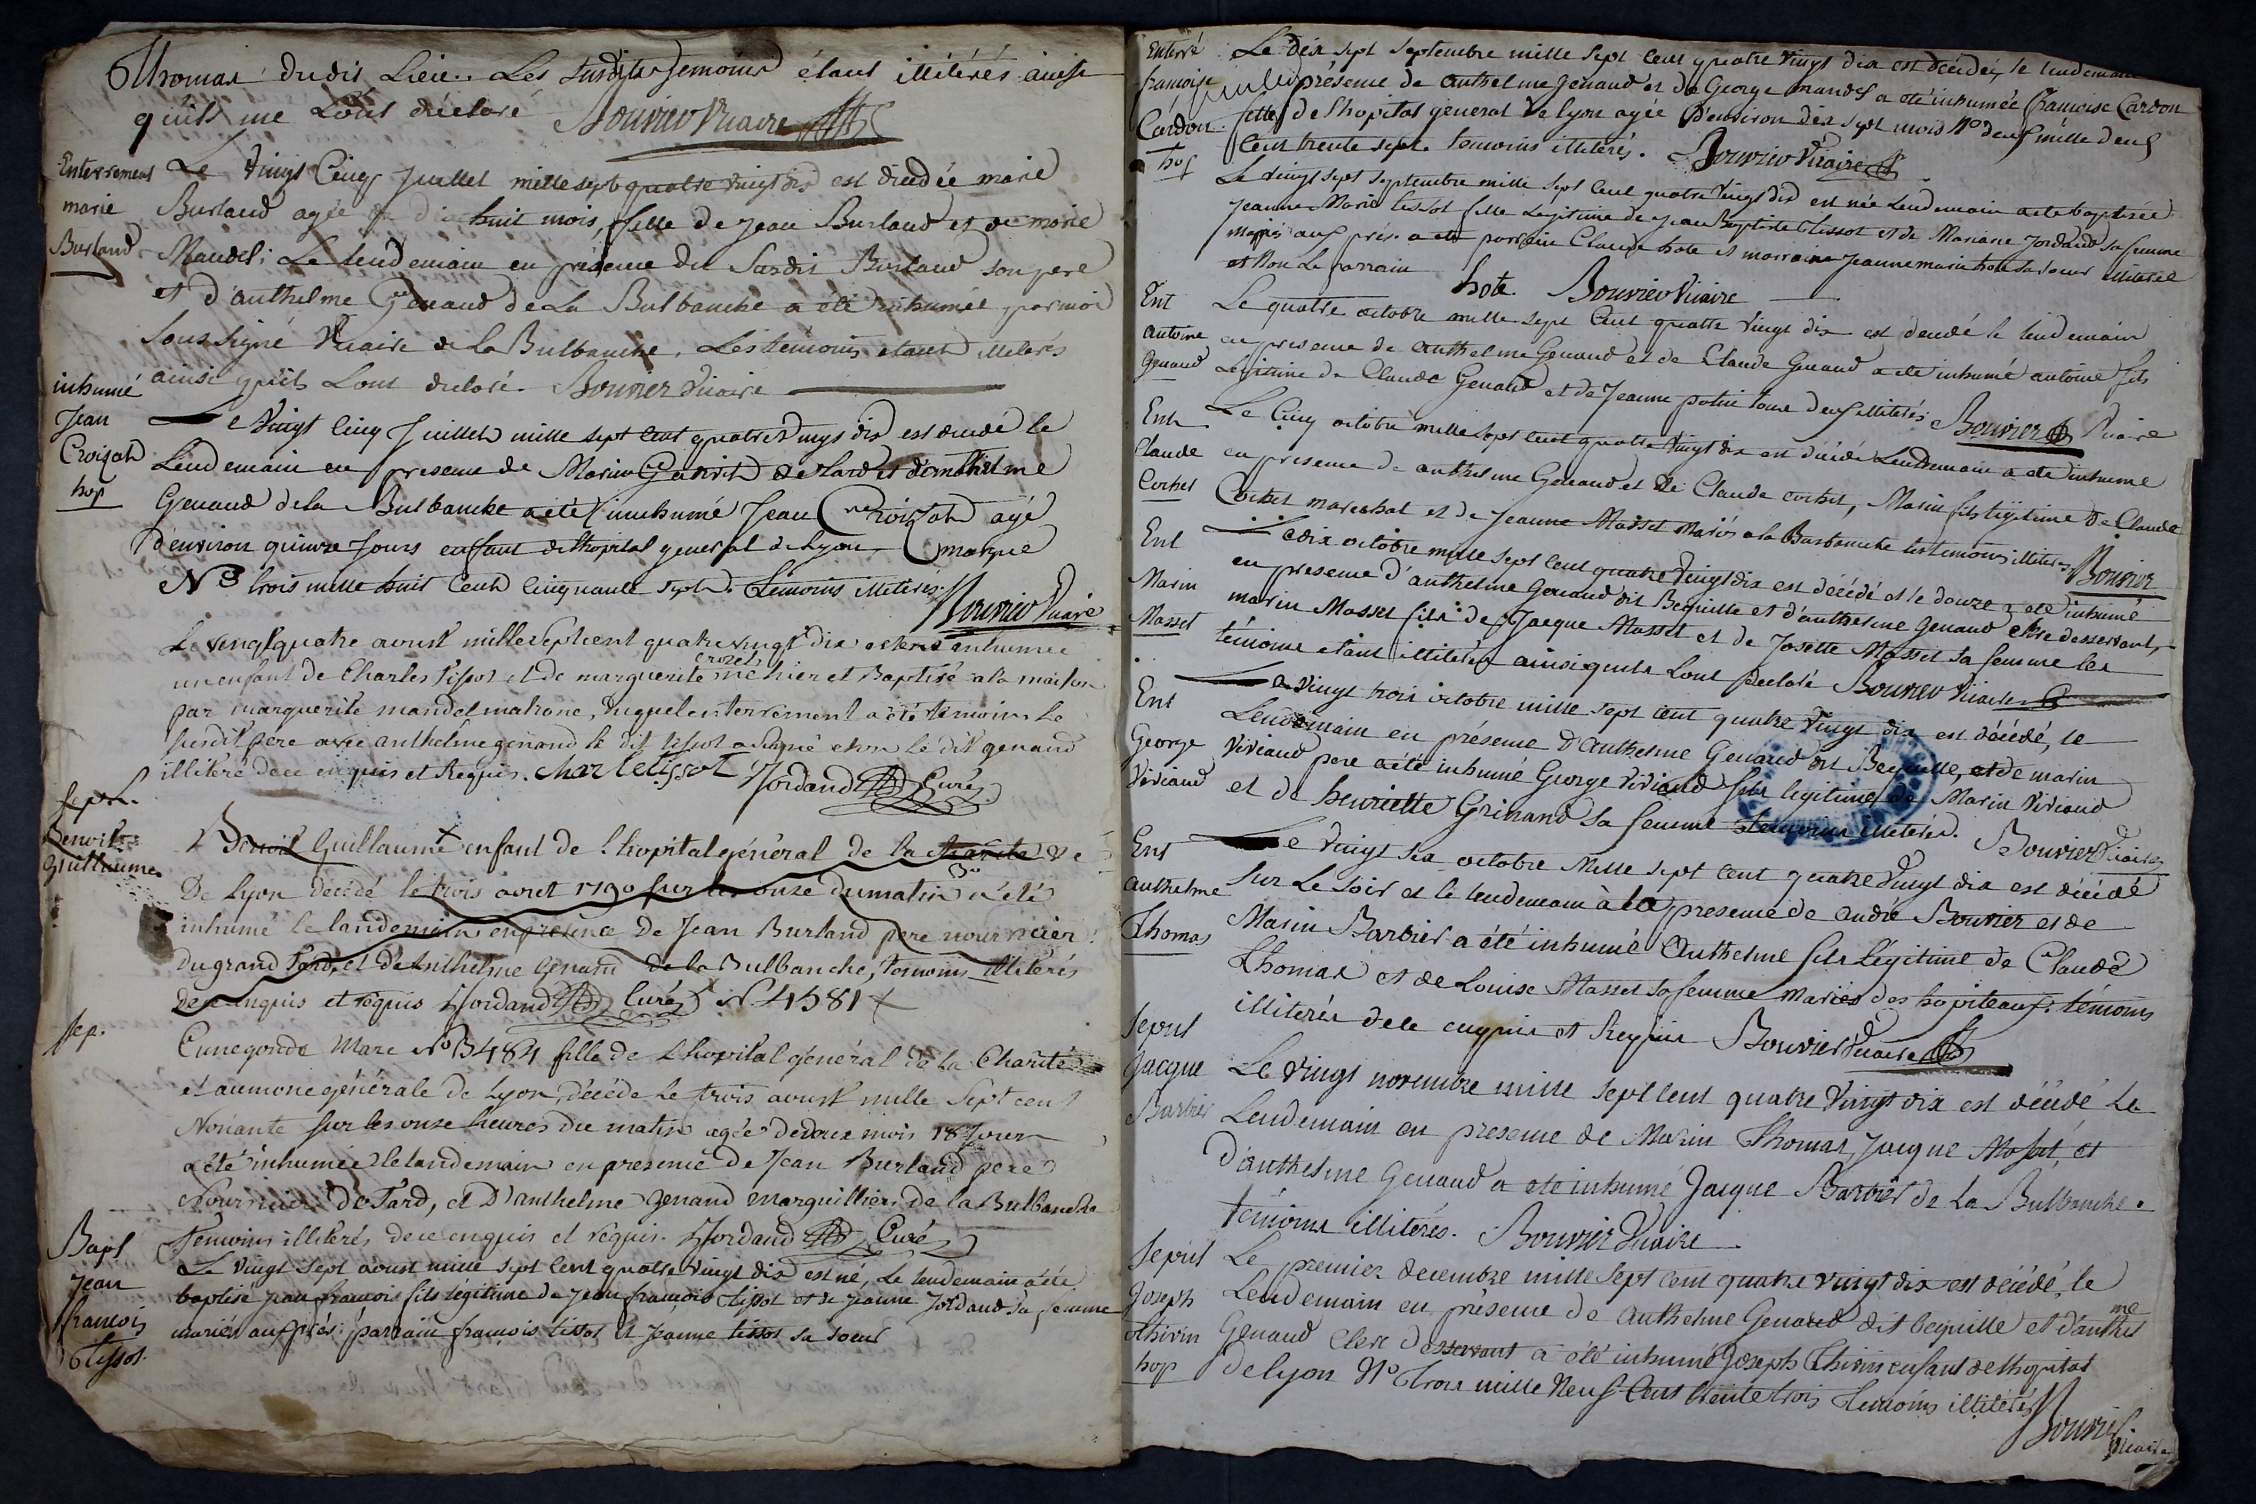 Thomas dudit Lieu. Les susdits temoins étant illiterés ainsi
quils me Lont déclaré Bouvier Vicaire
Enterrement
marie
Burland
Le vingt Cinq Juillet mille sept quatre vingt dix est décédée marie
Burland agée de dix huit mois, fille de Jean Burland et de marie
Mandel; Le lendemain en présence du Susdit Burland son pere
et d'anthelme Genaud de La Bulbanche a été inhumée par moi
Soussigné Vicaire de la Bulbanche. Les témoins etant illiterés
ainsi qu'ils Lont declaré. Bouvier Vicaire
inhumé
Jean
Croizat
hop
Le Vingt cinq Juillet mille sept cent quatre vingt dix est décédé le
Lendemain en presence de Marin et d'anthelme
Genaud dela Bulbanche a été inuhumé Jean Croizat agé
d'environ quinze Jours enfant de Lhopital general de Lyon, marque
No trois mille huit Cent Cinquante sept. Témoins illiterés. Bouvier Vicaire
Le vingt quatre aoust mille sept cent quatre vingt dix a été inhumée
un enfant de Charles tissot et de marguerite et Baptisé a la maison
par marguerite mandel matrone, duquel enterrement a été temoins le
susdit pere avec anthelme genand le dit tissot a Signé et non le dit genand
illiteré de ce enquis et Requis. Charle tissot Jordand Curé
sept.
Benoit
Guillaume
Benoit Guillaume enfant de Lhopital général de la charité de
De Lyon décédé le trois aout 1790 sur les onze du matin a été
inhumé le landemain en présence De Jean Burland pere nourricier
du grand Tard, et d'Anthelme Genand de la Bulbanche, temoins illiterés
De ce enquis et requis Jordand Curé No 4581
sep.
Cunegonde Marc No 3484 fille de Lhopital général de la Charité
et aumone générale de Lyon, décédé le trois aoust mille Sept cent
Nonante sur les onse heures du matin agée de deux mois 18 Jours
a été inhumée le landemain en presence De Jean Burland pere
Nourricier de Tard, et D'anthelme Genand marguillier de la Bulbanche
Temoins illiterés de ce enquis et requis. Jordand Curé
Bapt
Jean
francois
Tissot.
Le vingt sept aoust mille sept cent quatre vingt dix est né, le lendemain a été
baptisé jean francois fils légitime de jean francois Tissot et de jeanne Jordand sa femme
mariés aux prés: parrain francois tissot et jeanne tissot sa soeur
Enterré
francoise
Cardon
hop
Le dix sept septembre mille sept cent quatre vingt dix est décédée, le lendemain
présence de anthelme Genaud et de George mandel a été inhumée francoise Cardon
fille de Lhopital general de lyon agée d'environ dix sept mois No deux mille deux
Cent trente sept. temoins illiterés. Bouvier Vicaire
Le vingt sept septembre mille sept cent quatre vingt dix est née Lendemain a ete baptisée
jeanne Marie tissot fille Legitime de jean Baptiste Tissot et de Mariane Jordand sa femme
mariés aux prés. a ete parrain Claude hote et marraine jeanne marie hote sa soeur illiterée
et Non Le parrain hote. Bouvier Vicaire
Ent
antoine
Genaud
Le quatre octobre mille sept Cent quatre vingt dix est decedé le lendemain
en presence de anthelme Genaud et de Claude Genaud a été inhumé antoine fils
Legitime de Claude Genaud et de Jeanne tous deux illiterés Bouvier Vicaire
Ent
Claude
Cochet
Le Cinq octobre mille sept cent quatre vingt dix est décédé Lendemain a ete inhumé
en presence de anthelme Genaud et De Claude cochet, Marin fils legitime De Claude
Cochet marechal et de Jeanne Masset Mariés a la Burbanche les témoins illiterés Bouvier
Ent
Marin
Masset
Le dix octobre mille sept cent quatre vingt dix est décédé et le douze a été inhumé
en presence d'anthelme Genaud dit Bequille et d'anthelme Genaud clerc desservant,
marin Masset fils de Jacque Masset et de Josette Masset sa femme les
témoins etant illiterés ainsi quils Lont declaré Bouvier Vicaire
Ent
George
Viviand
Le vingt trois octobre mille sept cent quatre vingt dix est décédé, le
Lendemain en présence D'anthelme Genaud dit Bequille, et de marin
Viviand pere a été inhumé George Viviand fils legitime de Marin Viviand
et de henriette Grinand sa femme temoins illiterés. Bouvier Vicaire
Ent
anthelme
Thomas
Le Vingt six octobre Mille sept cent quatre vingt dix est décédé
sur Le Soir et le lendemain à la presence de andré Bouvier et de
Marin Barbier a été inhumé anthelme fils Légitime de Claude
Thomas et de Louise Masset sa femme mariés des hopiteaux: témoins
illiterés de ce enquis et Requis Bouvier Vicaire
Sepul
Jacque
Barbier
Le vingt novembre mille sept cent quatre vingt dix est décédé Le
Lendemain en presence de Marin Thomas, Jacque Masset, et
d'anthelme Genaud a ete inhumé Jacque Barbier de La Bulbanche.
témoins illiterés. Bouvier Vicaire
Sepul
Joseph
Thivin
hop
Le premier decembre mille sept cent quatre vingt dix est décédé, le
Lendemain en présence de Anthelme Genaud dit bequille et d'anthelme
Genaud Clerc desservant a été inhumé Joseph Thivin enfant de Lhopital
de Lyon No Trois mille Neuf Cent trente trois Temoins illiterés
Bouvier
Vicaire